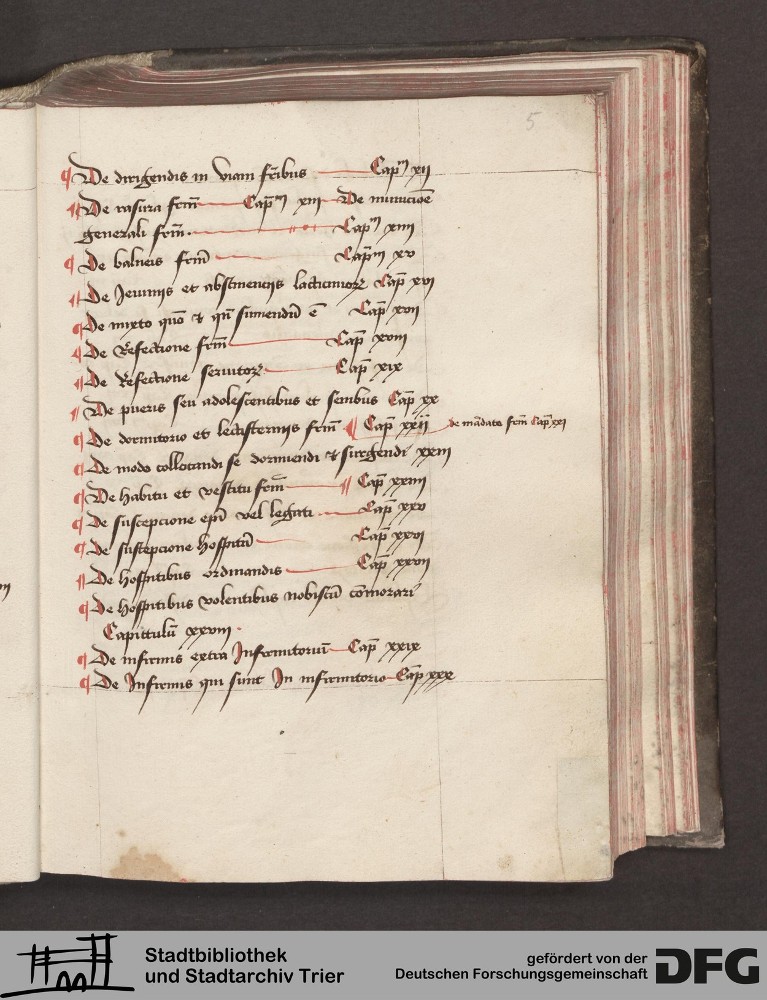 5
¶ De dirigendis in viam fr̄ibus Cap̄m xij
¶ De rasura fr̄m Cap̄m xiij De minucioē
generali fr̄m Cap̄m xiiij
¶ De balneis fr̄m Cap̄m xv
¶ De Jeiuniis et abstinencijs lacticinioꝝ Cap̄ xvj
¶ De mixto quō et qn̄ sumendū ē Cap̄ xvij
¶ De Refectione fr̄m Cap̄ xviij
¶ De Refectione seruitoꝝ Cap̄ xix
¶ De pueris seu adolescentibus et senibus Cap̄ xx
¶ De dormitorio et lectisternijs fr̄m ¶ Cap̄ xxij de mādato fr̄m Cap̄ xxi
¶ De modo collocandi se dormiendi et surgendi xxiij
¶ De habitu et vestitu fr̄m ¶ Cap̄ xxiiij
¶ De suscepcione ep̄i vel legati Cap̄ xxv
¶ De suscepcione hospitū Cap̄ xxvj
¶ De hospitibus ordinandis Cap̄ xxvij
¶ De hospitibus volentibus nobiscū cōmorari
Capittulū xxviij
¶ De infirmis extra Infirmitoriū Cap̄ xxix
¶ De Infirmis qui sunt In infirmitorio Cap̄ xxx
Stadtbibliothek
und Stadtarchiv Trier
gefördert von der
Deutschen Forschungsgemeinschaft
DFG